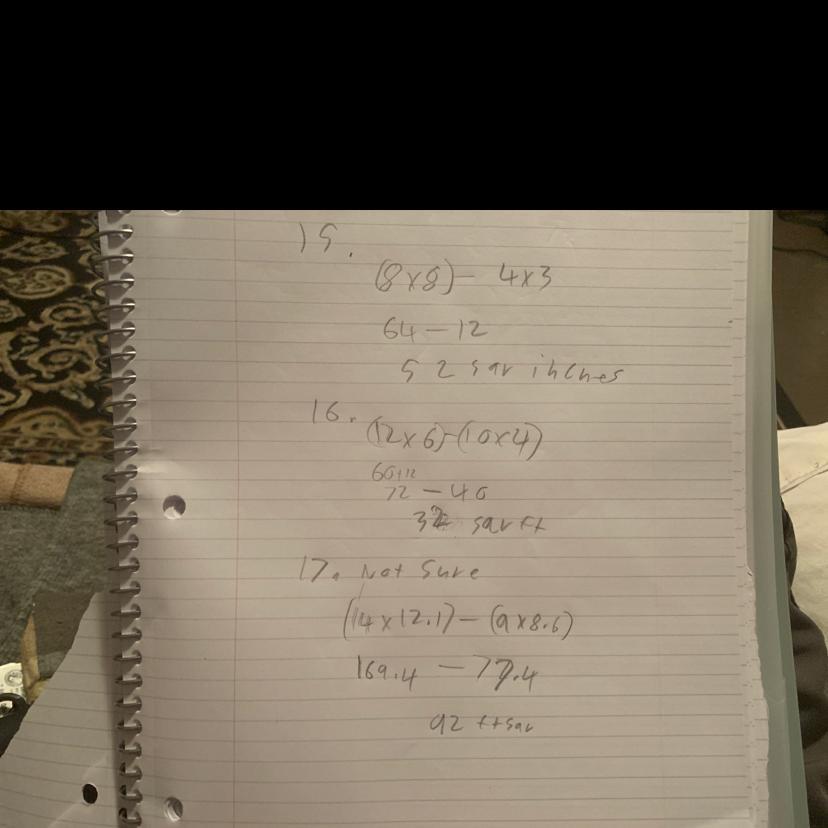 15.
(8x8) - 4x3
64 - 12
52 sqr inches
16. (12x6)-(10x4)
60+12
72 - 40
32 sqr ft
17. Not Sure
(14x12.1) - (9x8.6)
169.4 - 77.4
92 ft sqr